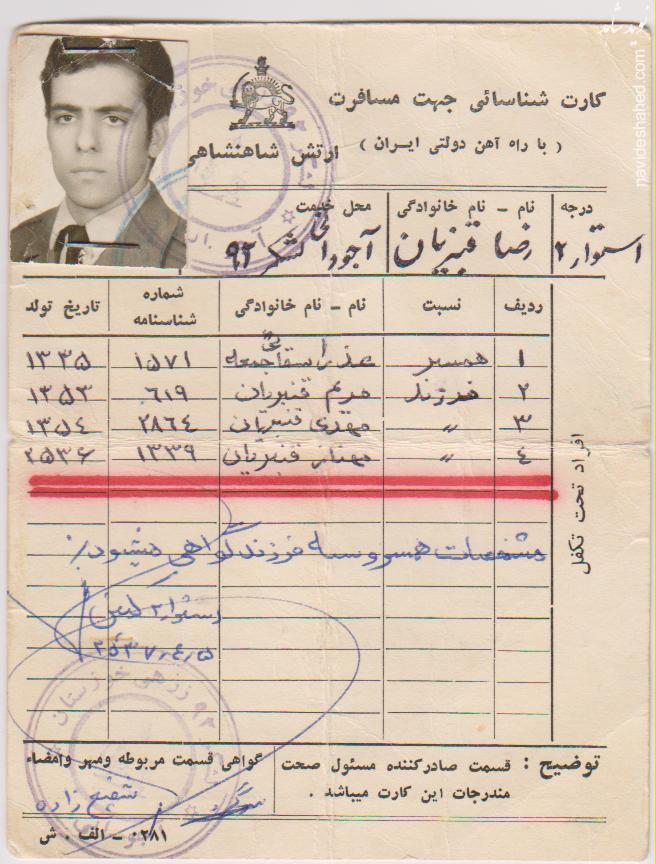 نوید شاهد
navideshahed.com
کارت شناسائی جهت مسافرت
( با راه آهن دولتی ایران ) ارتش شاهنشاهی
درجه نام - نام خانوادگی محل خدمت
استوار ۲ رضا قنبریان آجودانی لشکر ۹۲
ردیف نسبت نام - نام خانوادگی شماره شناسنامه تاریخ تولد
۱ همسر عذرا جمعه ۱۵۷۱ ۱۳۳۵
۲ فرزند مریم قنبریان ۶۱۹ ۱۳۵۳
۳ " مهدی قنبریان ۲۸۶۴ ۱۳۵۴
۴ " مهناز قنبریان ۱۳۳۹ ۲۵۳۶
افراد تحت تکفل
مشخصات همسر و سه فرزند گواهی میشود :
استوار
۲۵۳۷٫۴٫۵
۹۲ زرهی خوزستان
توضیح : قسمت صادرکننده مسئول صحت
مندرجات این کارت میباشد .
گواهی قسمت مربوطه ومهر وامضاء
شفیع زاده
۰۲۸۱ - الف . ش